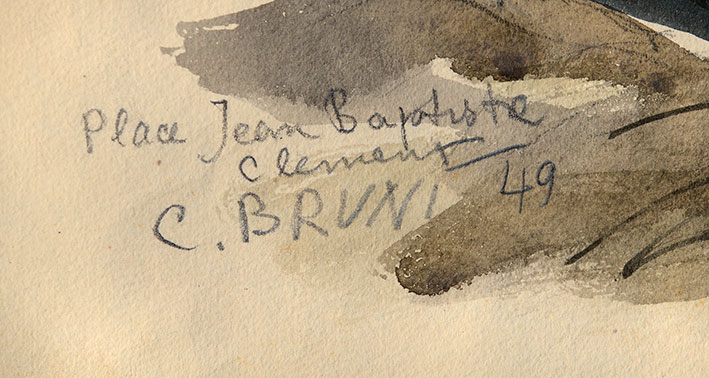 Place Jean Baptiste
Clement
49
C. BRUNI